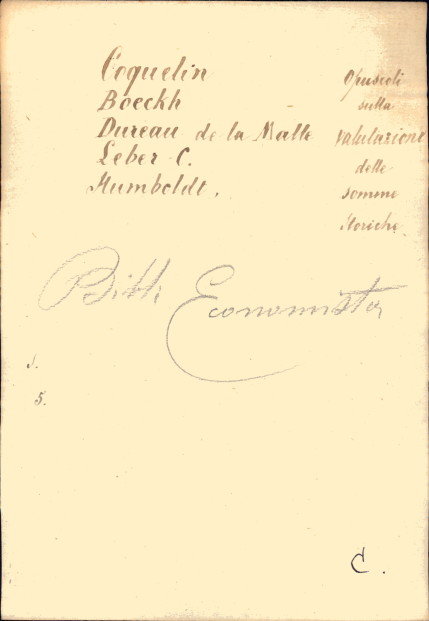 Coquelin
Boeckh
Dureau de la Malle
Leber C.
Humboldt.
Opuscoli
sulla
valutazione
delle
somme
storiche
Bibl. Economista
S.
5.
C.